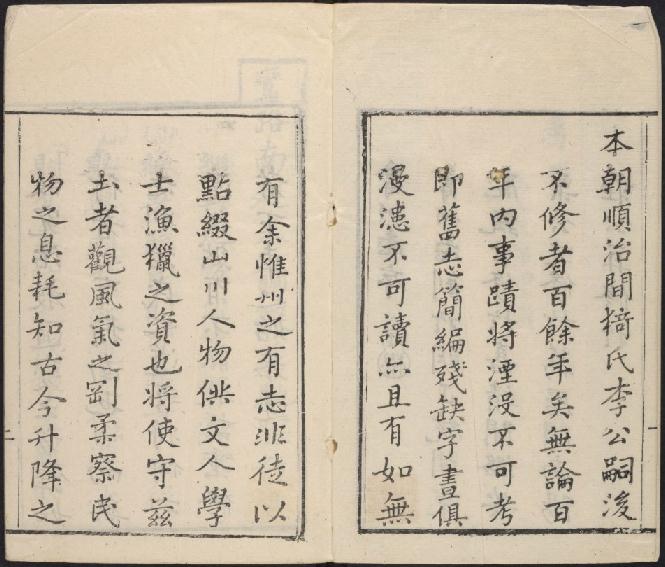 本朝順治間猗氏李公嗣後
不修者百餘年矣無論百
年内事蹟將湮没不可考
即舊志簡編殘缺字畫俱
漫漶不可讀亦且有如無
有余惟州之有志非徒以
點綴山川人物供文人學
士漁獵之資也將使守兹
土者觀風氣之剛柔察民
物之息耗知古今升降之